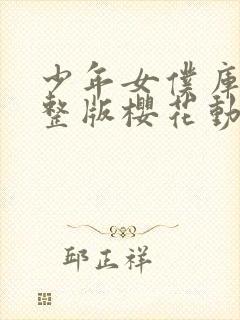 少年女僕庫
整版櫻花動
邱正祥